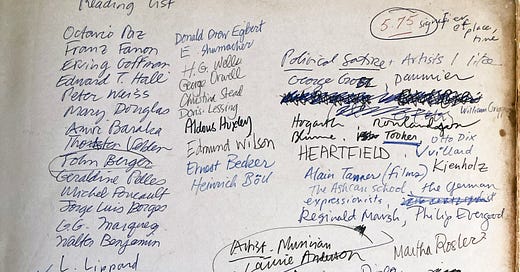 Reading List
Octavio Paz
Franz Fanon
Erving Goffman
Edward T. Hall
Peter Weiss
Mary Douglas
Amiri Baraka
John Berger
Geraldine Pelles
Michel Foucault
Jorge Luis Borges
G.G. Marquez
Walter Benjamin
L. Lippard
Donald Drew Egbert
E. Shumacher
H.G. Wells
George Orwell
Christine Stead
Doris Lessing
Aldous Huxley
Edmund Wilson
Ernest Becker
Heinrich Böll
5.75 signifiers of place, time
Political Satire + Artists I like
George Daumier
William Gropper
Hogarth, Rowlandson
Blume, Tooker Otto Dix
HEARTFIELD, Vuillard
Alain Tanner (films) Kienholz
The Ashcan School, the German
expressionists,
Reginald Marsh, Philip Evergood
Artist-Musician
Laurie Anderson
Martha Rosler?